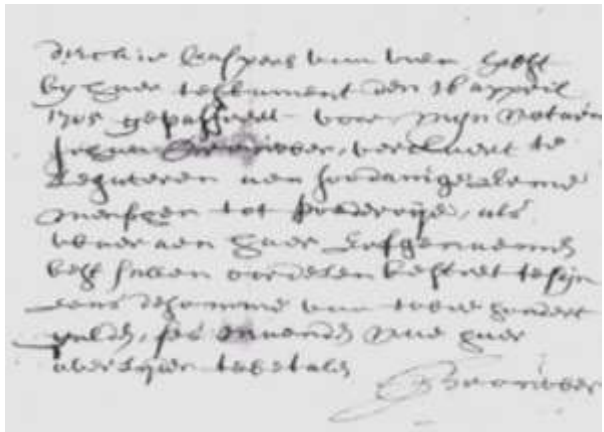 dirckie Caspers van uien heeft
by haer testament den 16 appril
1705 gepasseert voor mijn Notaris
Johan Brouwer, verclaert te
Legateren aen sodanige arme
menschen tot poederoije, als
waer aen haer Erfgenaemen
best sullen oordelen besteet te sijn
eens de somme van twee hondert
gulden, ses maenden nae haer
overlijden te betalen